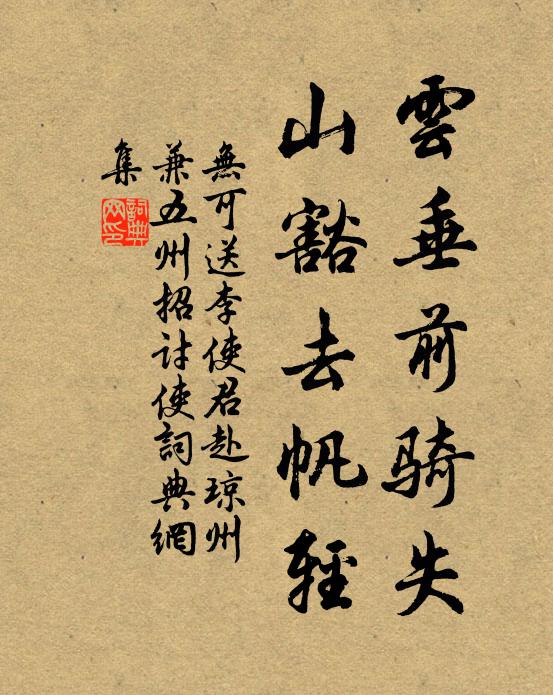 雲垂前骑失
山豁去帆轻
無可送李使君赴琼州
兼五州招討使詞典網
集
詞典
网印